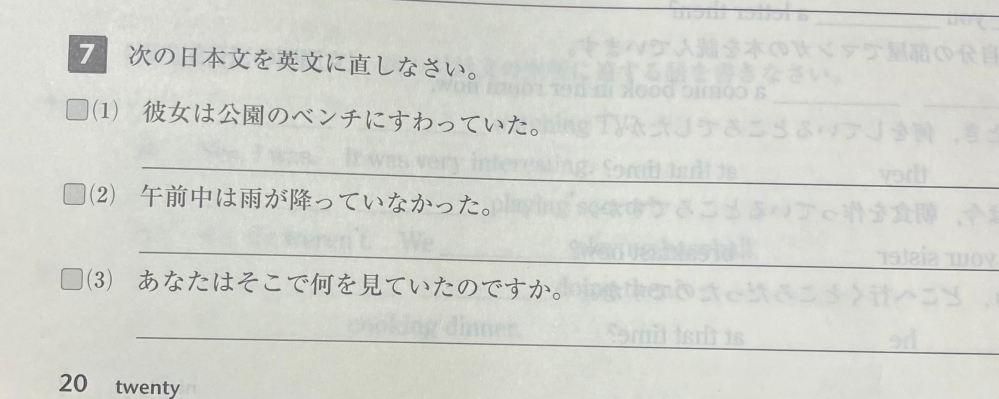 7 次の日本文を英文に直しなさい。
(1) 彼女は公園のベンチにすわっていた。
(2) 午前中は雨が降っていなかった。
(3) あなたはそこで何を見ていたのですか。
20 twenty